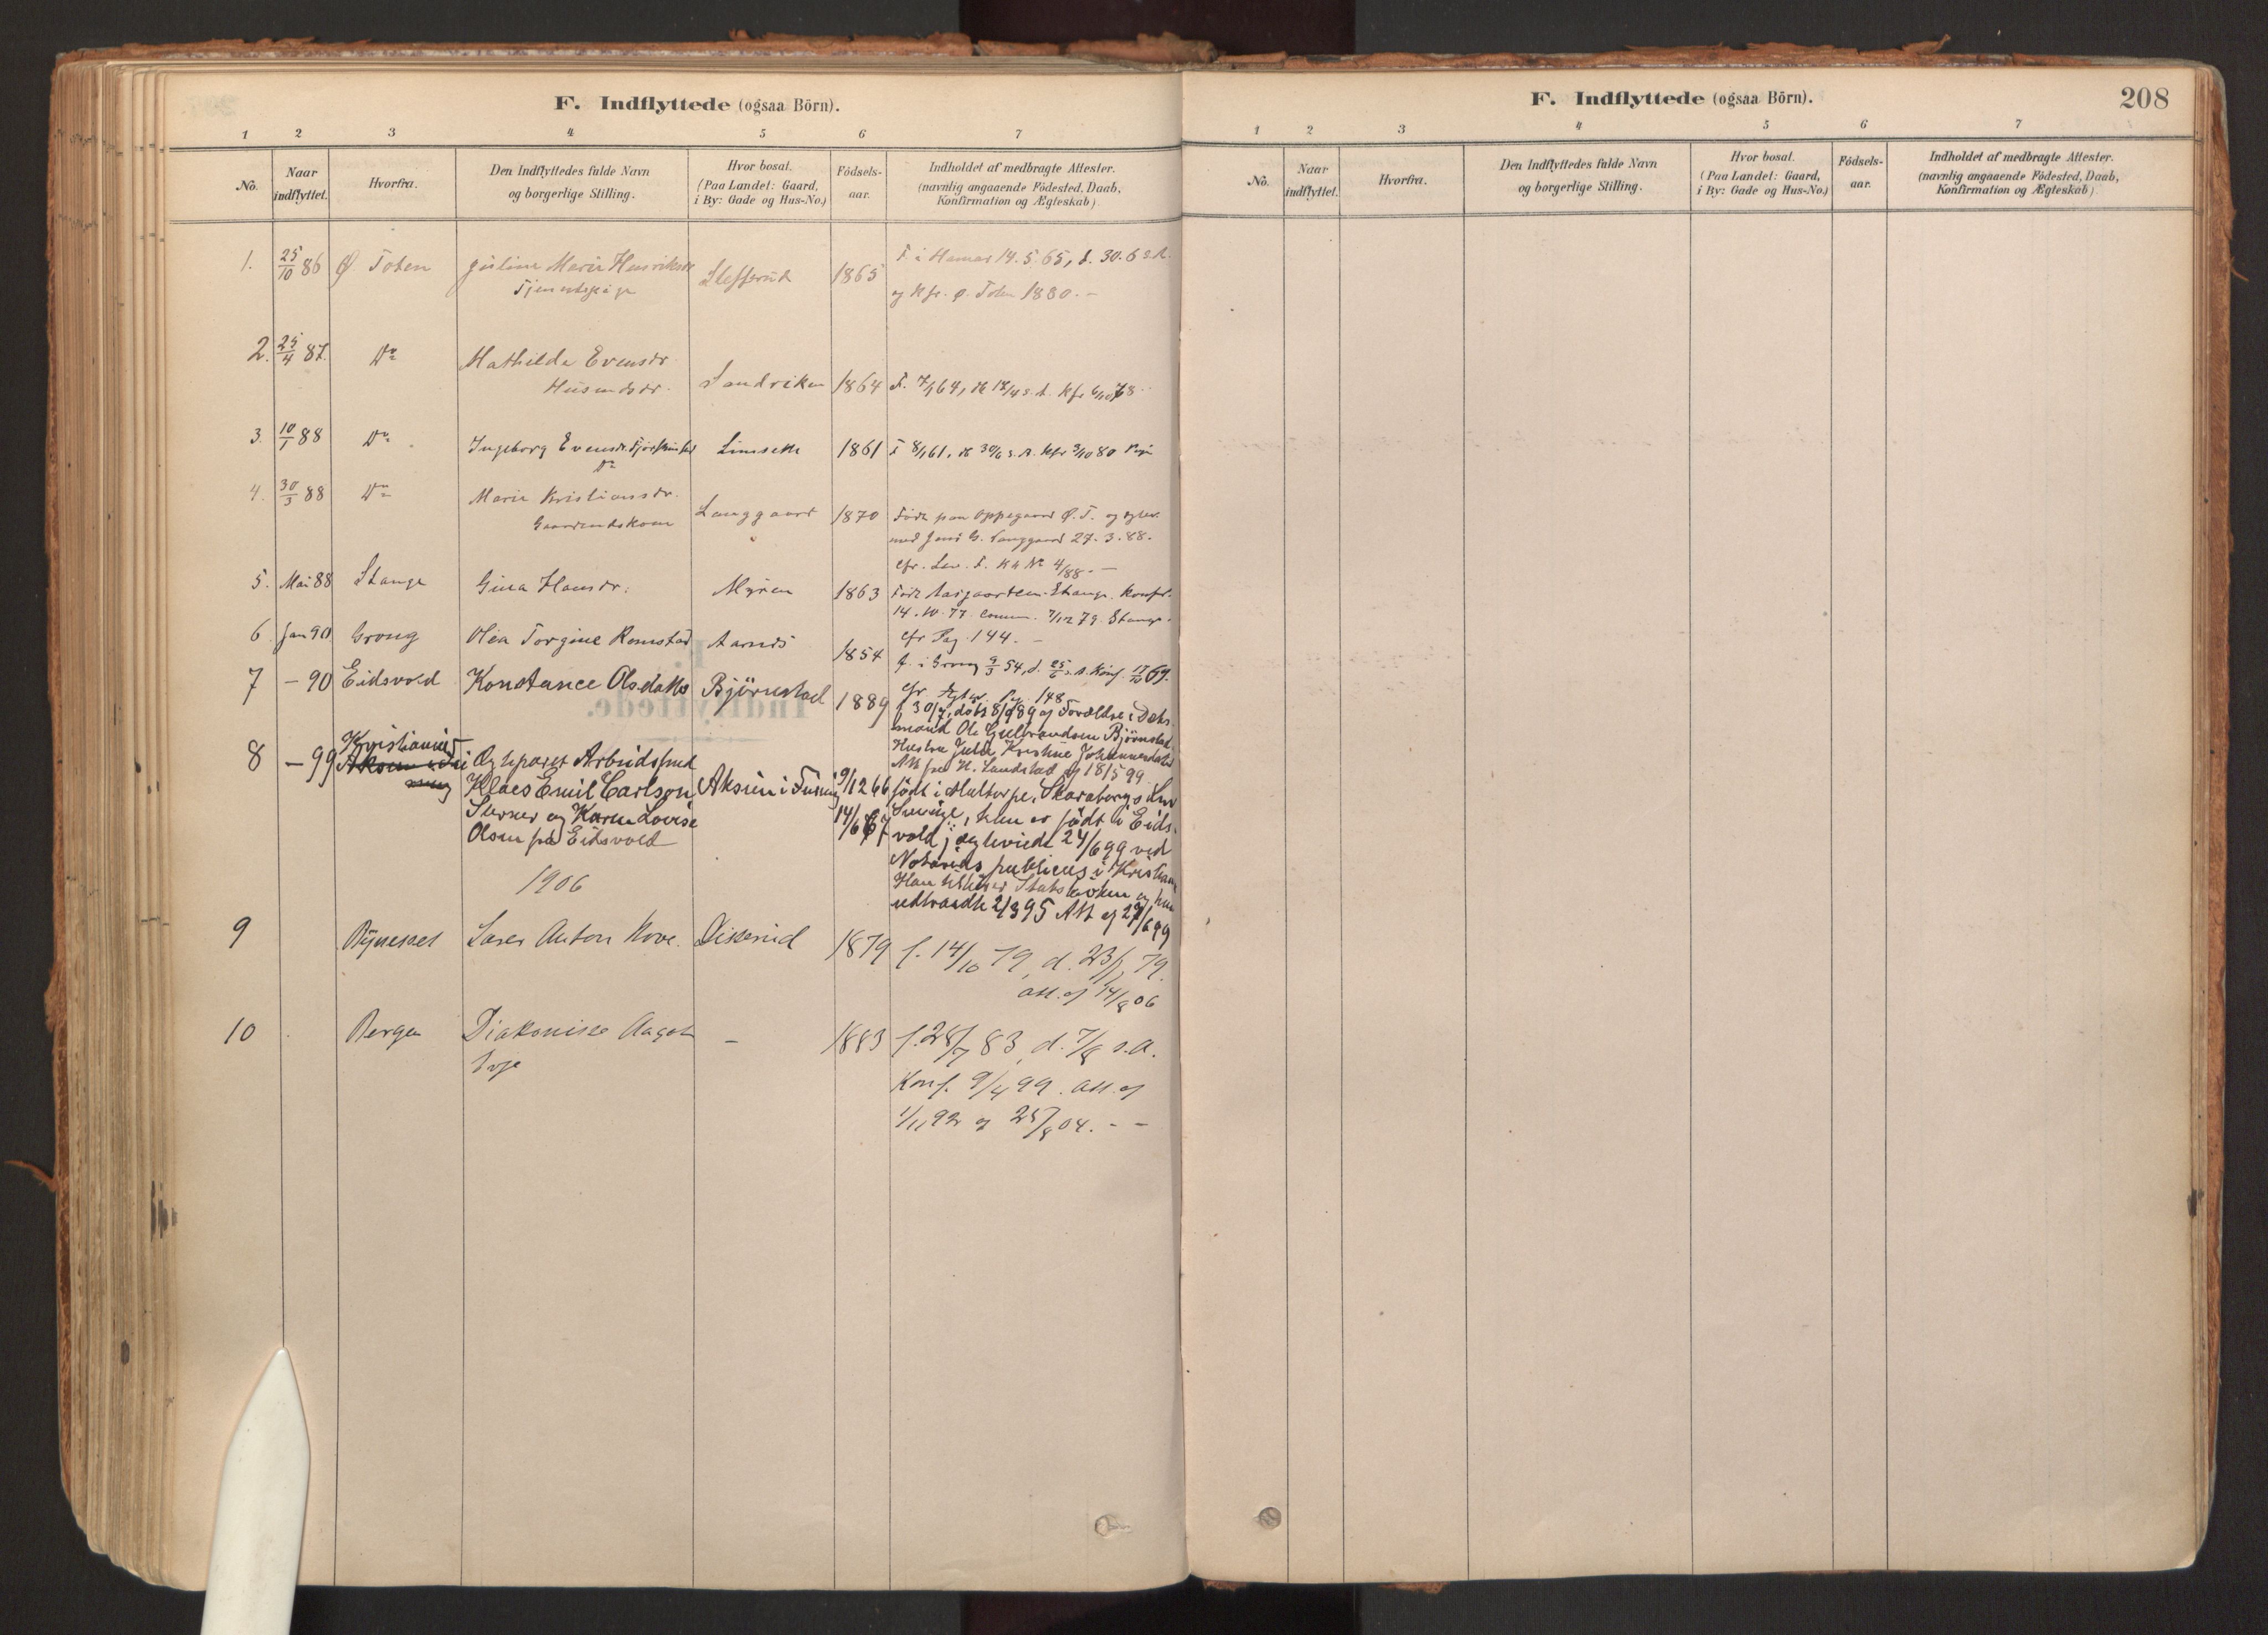 F. Indflyttede (ogsaa Börn).
1 2 3 4 5 6 7
No. Naar indflyttet. Hvorfra. Den Indflyttedes fulde Navn og borgerlige Stilling. Hvor bosat. (Paa Landet: Gaard, i By: Gade og Hus-No.) Födsels-aar. Indholdet af medbragte Attester. (navnlig angaaende Födested, Daab, Konfirmation og Ægteskab).
1. 25/10 86 Ø Toten Juline Marie Henriksdr 1865 F. i Hamar 14.5.65, d. 30.6 s.A.
Tjenestepige og Kfr. Ø. Toten 1880. -
2. 25/4 87. Do Mathilde Evensdr
Husmdsdr. Sandviken 1864 F. 7/1 64, d 17/4 s.A. Kfr 6/10 78
3. 10/1 88 Do Ingeborg Evensdr. 1861 F 8/1 61, d 30/6 s.A. Kfr 3/10 80
Do
4. 30/3 88 Do Marie Kristiansdr.
Gaardmdskone Langgaard 1870 Födt paa Oppegaard Ø.T. og egtev.
med Jens G. Langgaard 27.3.88.
cfr. Lev. F. No 4/88. -
5. Mai 88 Stange Gina Hansdr. Myren 1863 Födt Stange. Konfr.
14.10.77. comm. 7/12 79. Stange.
6 Jan 90 Grong Olea Torgine Romstad Aarnes 1854 cfr Pag. 144. -
f. i Grong 9/3 54, d. 25/6 s.A. Konf. 17/10 69.
7 - 90 Eidsvold Konstance Olsdatter Björnstad 1889 cfr. Egtev. Pag. 148
f 30/7, döbt 8/9 89 af Forældre:
mand Ole Gulbrandsen Björnstad
Hustru Julie Kristine Johannesdatter
Att fra H. Sandstad af 18/5 99
8 - 99 Kristiania Ægteparet Arbeidsmd
Klaes Emil Carlson Aksien i Furnes 9/12 66 födt i Hultorpe, Skaraborgs Len
Surner og Karen Lovise 14/6 67 Sverige, hun er födt i Eids-
Olsen fra Eidsvold vold; egteviede 24/6 99 ved
Notarius publicus i Kristiania
1906 Han tilhörer Statskirken og hun
udtraadte 2/3 95 Att af 27/6 99
9 Bynesset Lars Anton Hove. Diserud 1879 f. 14/10 79, d. 23/11 79.
att. af 14/8 06
10 Bergen Diakonisse Aagot - 1883 f. 28/7 83, d. 7/8 s.A.
Konf. 9/4 99. att. af
1/11 92 og 25/8 04. - -
F. Indflyttede (ogsaa Börn). 208
1 2 3 4 5 6 7
No. Naar indflyttet. Hvorfra. Den Indflyttedes fulde Navn og borgerlige Stilling. Hvor bosat. (Paa Landet: Gaard, i By: Gade og Hus-No.) Födsels-aar. Indholdet af medbragte Attester. (navnlig angaaende Födested, Daab, Konfirmation og Ægteskab).